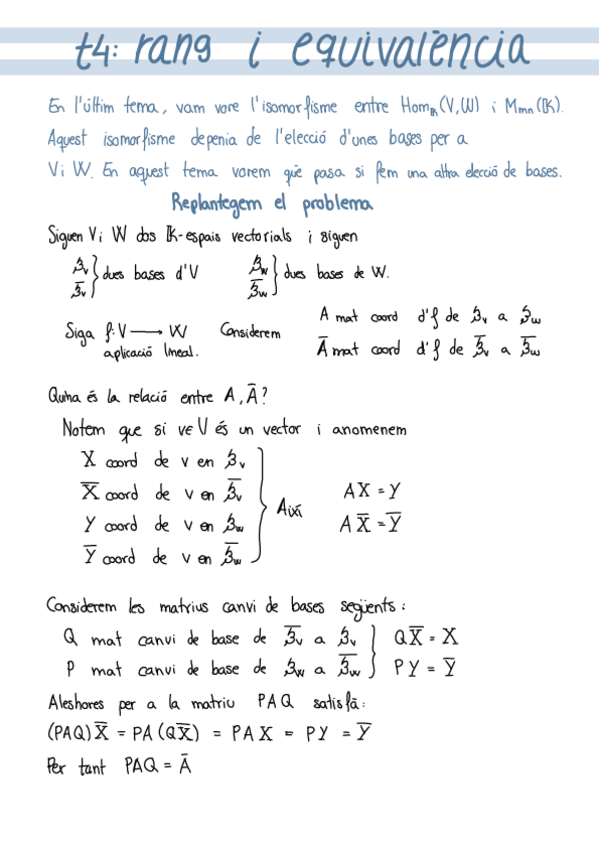 t4: rang i equivalència
En l'últim tema, vam vore l'isomorfisme entre Hom_𝕂(V,W) i M_mn(𝕂).
Aquest isomorfisme depenia de l'elecció d'unes bases per a
V i W. En aquest tema vorem què pasa si fem una altra elecció de bases.
Replantegem el problema
Siguen V i W dos 𝕂-espais vectorials i siguen
β_v } dues bases d'V β_w } dues bases de W.
β̅_v β̅_w
Siga f: V → W Considerem A mat coord d'f de β_v a β_w
aplicació lineal. Ā mat coord d'f de β̅_v a β̅_w
Quina és la relació entre A, Ā?
Notem que si v∈V és un vector i anomenem
X coord de v en β_v
X̅ coord de v en β̅_v
Y coord de v en β_w
Y̅ coord de v en β̅_w
Així AX = Y
AX̅ = Y̅
Considerem les matrius canvi de bases següents:
Q mat canvi de base de β̅_v a β_v } QX̅ = X
P mat canvi de base de β_w a β̅_w } PY = Y̅
Aleshores per a la matriu PAQ satisfà:
(PAQ)X̅ = PA(QX̅) = PAX = PY = Y̅
Per tant PAQ = Ā